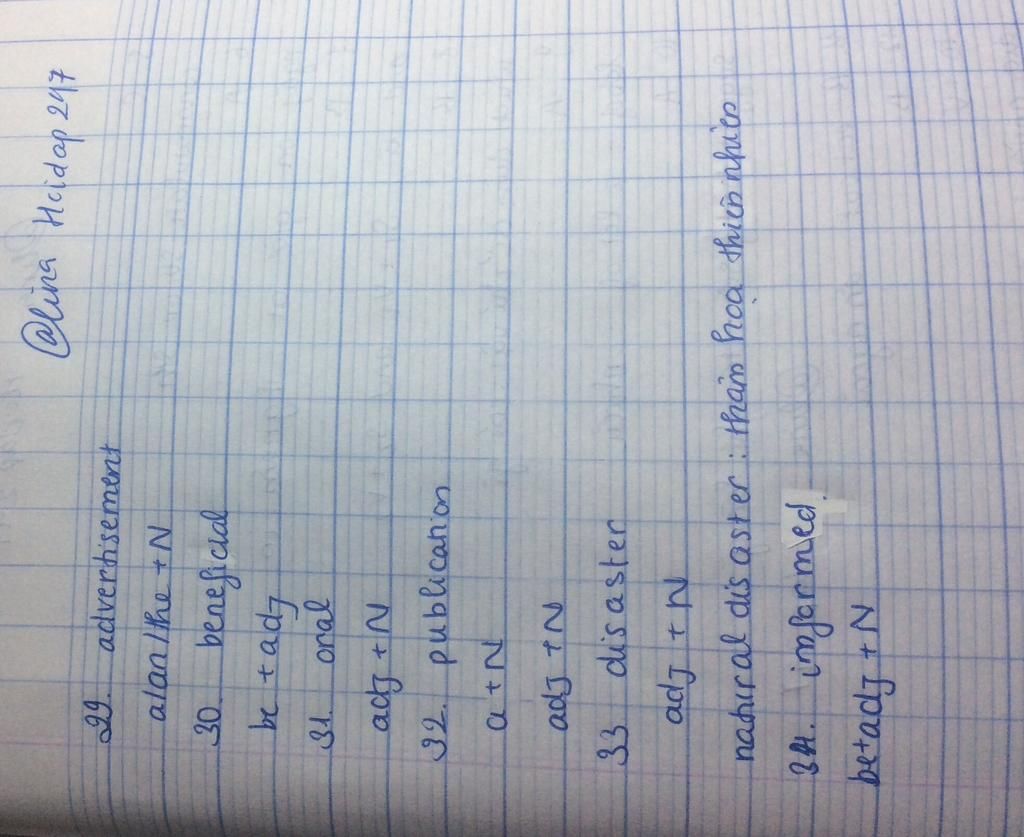 @lina Hoidap 247
29. advertisement
a/an/the + N
30. beneficial
be + adj
31. oral
adj + N
32. publication
a + N
adj + N
33. disaster
adj + N
natural disaster : thảm họa thiên nhiên
34. imformed.
be+adj + N